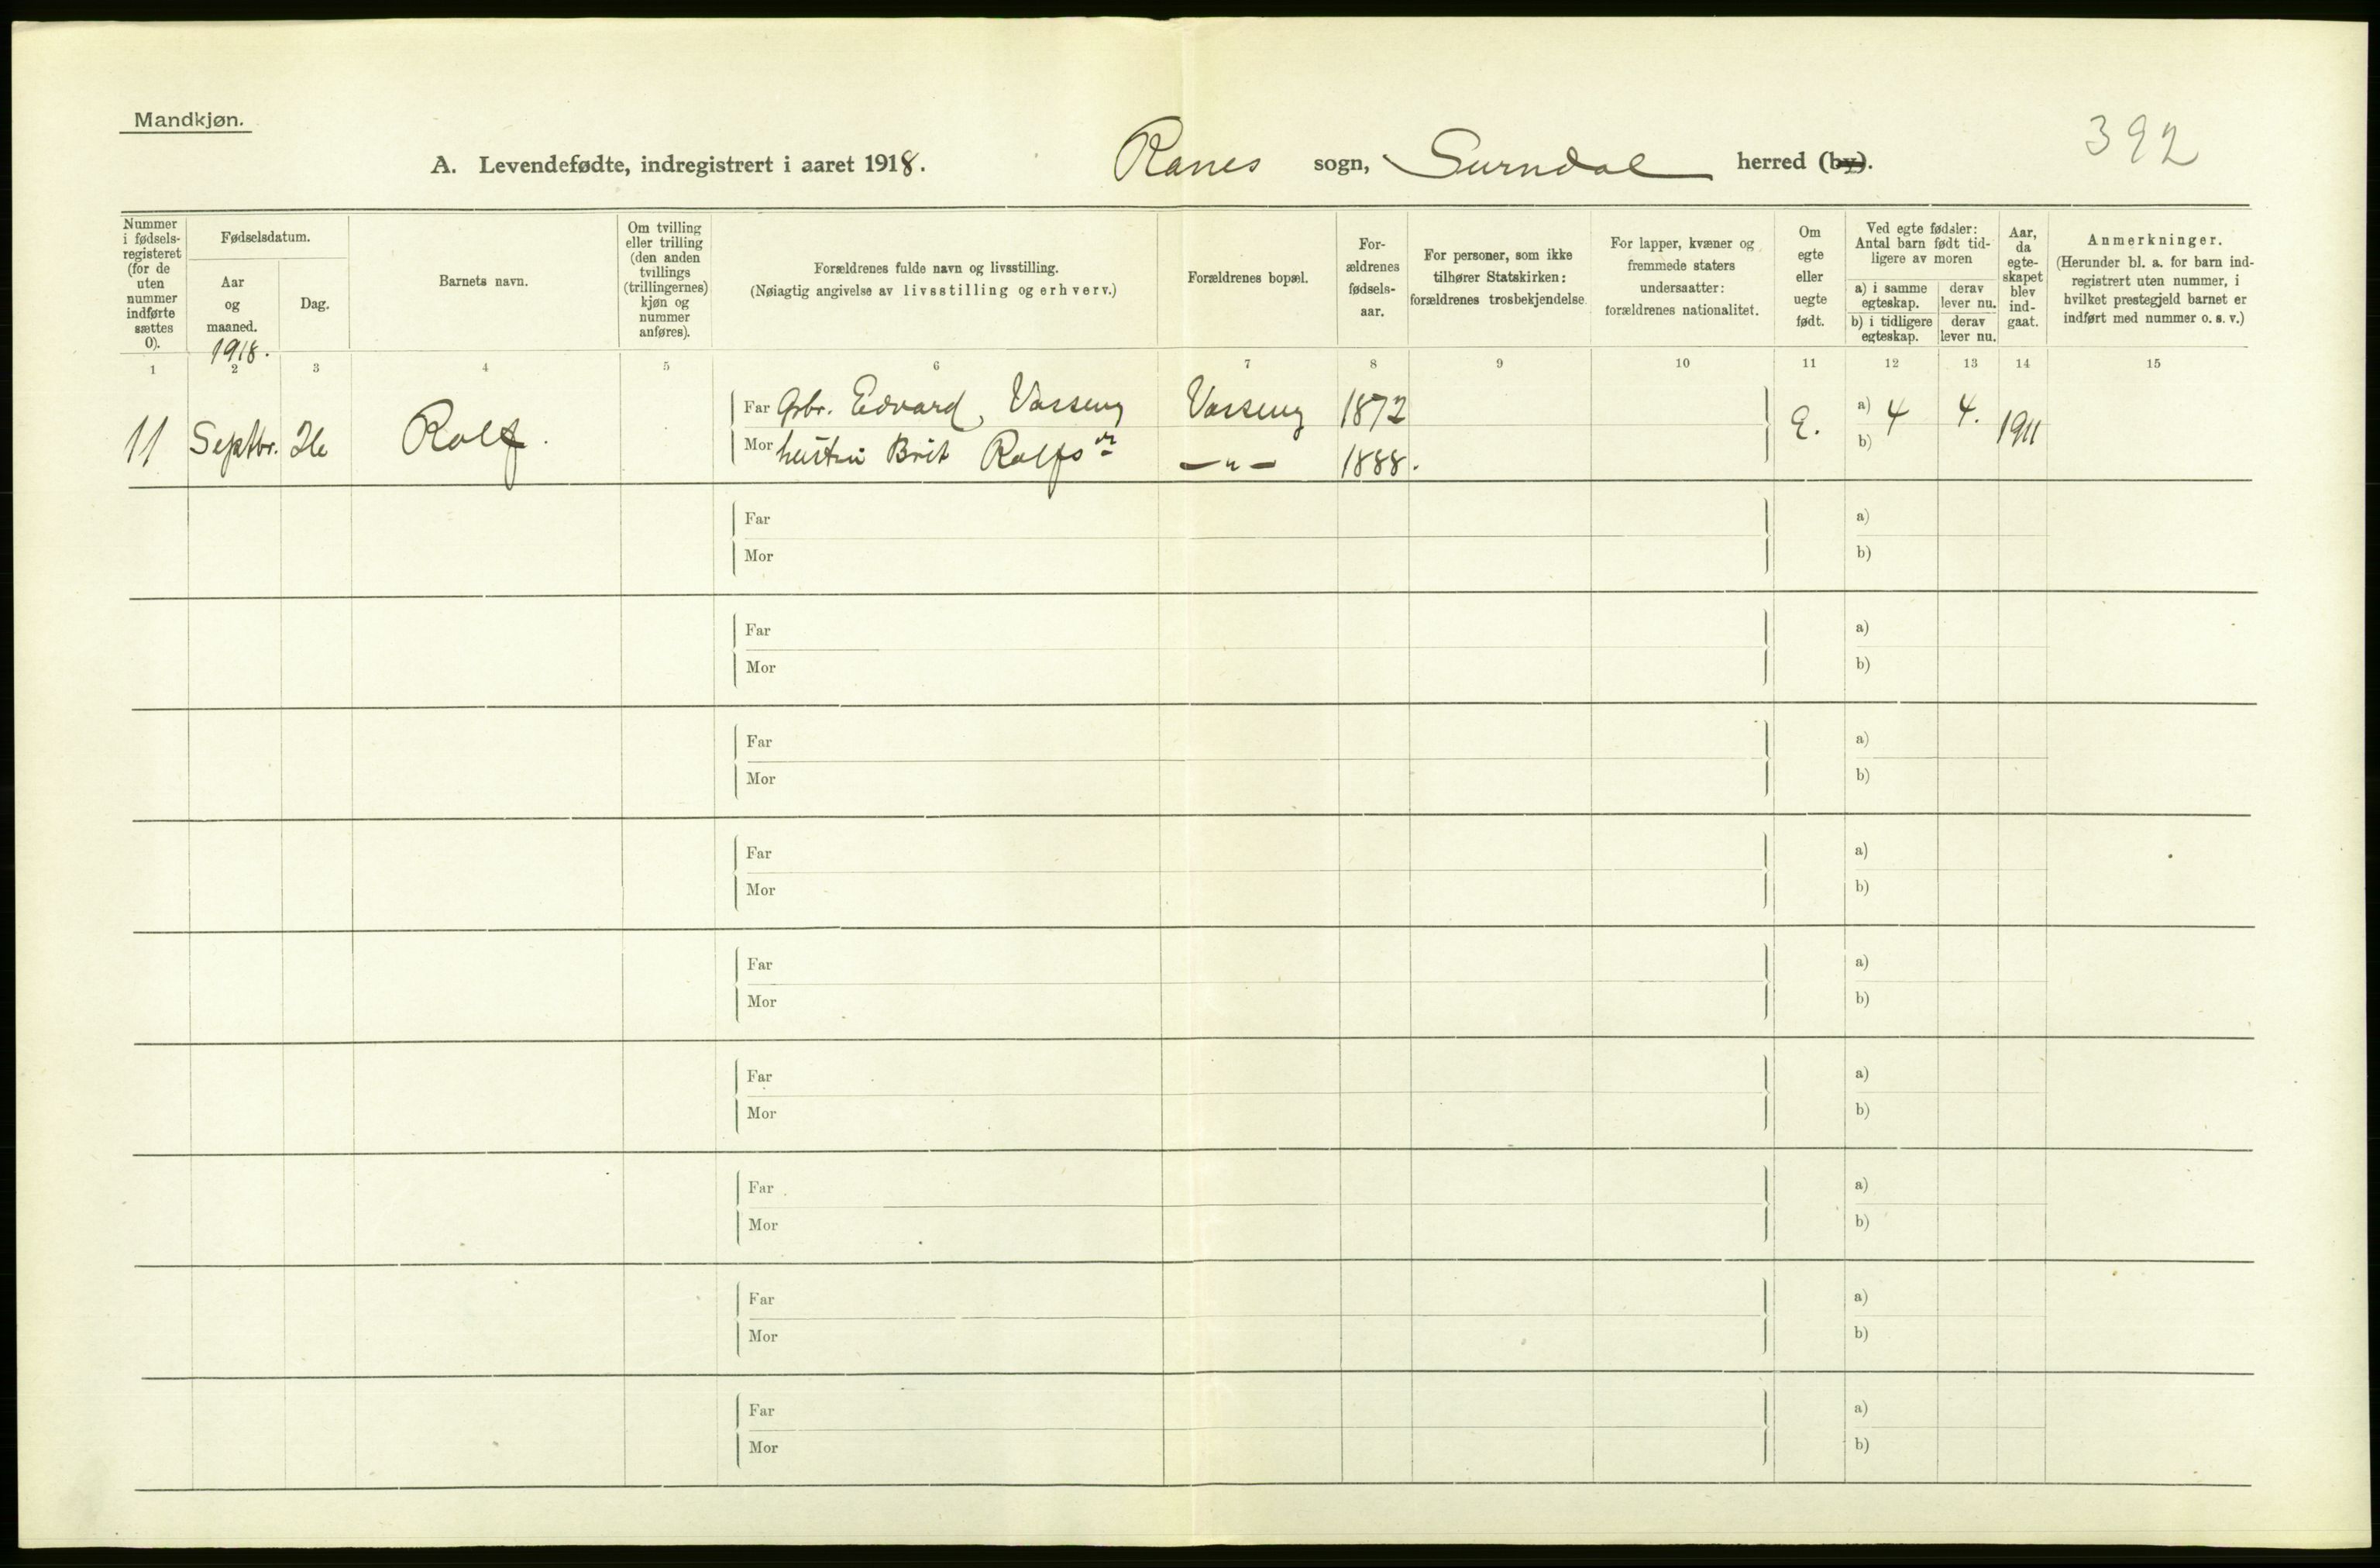 Mandkjøn.
392
A. Levendefødte, indregistrert i aaret 1918. Ranes sogn, Surndal herred (by).
Nummer i fødsels-registeret (for de uten nummer indførte sættes 0).
Fødselsdatum.
Aar og maaned.
1918.
Dag.
Barnets navn.
Om tvilling eller trilling (den anden tvillings (trillingernes) kjøn og nummer anføres).
Forældrenes fulde navn og livsstilling.
(Nøiagtig angivelse av livsstilling og erhverv.)
Forældrenes bopæl.
For-ældrenes fødsels-aar.
For personer, som ikke tilhører Statskirken: forældrenes trosbekjendelse.
For lapper, kvæner og fremmede staters undersaatter: forældrenes nationalitet.
Om egte eller uegte født.
Ved egte fødsler: Antal barn født tid-ligere av moren
a) i samme egteskap.
derav lever nu.
b) i tidligere egteskap.
derav lever nu.
Aar, da egte-skapet blev ind-gaat.
Anmerkninger.
(Herunder bl. a. for barn ind-registrert uten nummer, i hvilket prestegjeld barnet er indført med nummer o. s. v.)
1 2 3 4 5 6 7 8 9 10 11 12 13 14 15
Far Gbr. Edvard Vasseng Vasseng 1872 a) 4 4.
11 Septbr. Rolf. E. 1911
Mor hustru Brit Rolfsdr —"— 1888. b)
Far a)
Mor b)
Far a)
Mor b)
Far a)
Mor b)
Far a)
Mor b)
Far a)
Mor b)
Far a)
Mor b)
Far a)
Mor b)
Far a)
Mor b)
Far a)
Mor b)